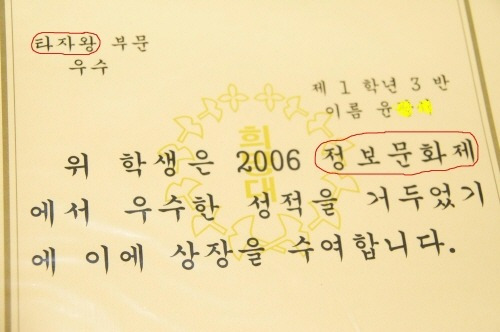 타자왕 부문
우수
제 1 학년 3 반
이름 윤
희
대
위 학생은 2006 정보문화제
에서 우수한 성적을 거두었기
에 이에 상장을 수여합니다.